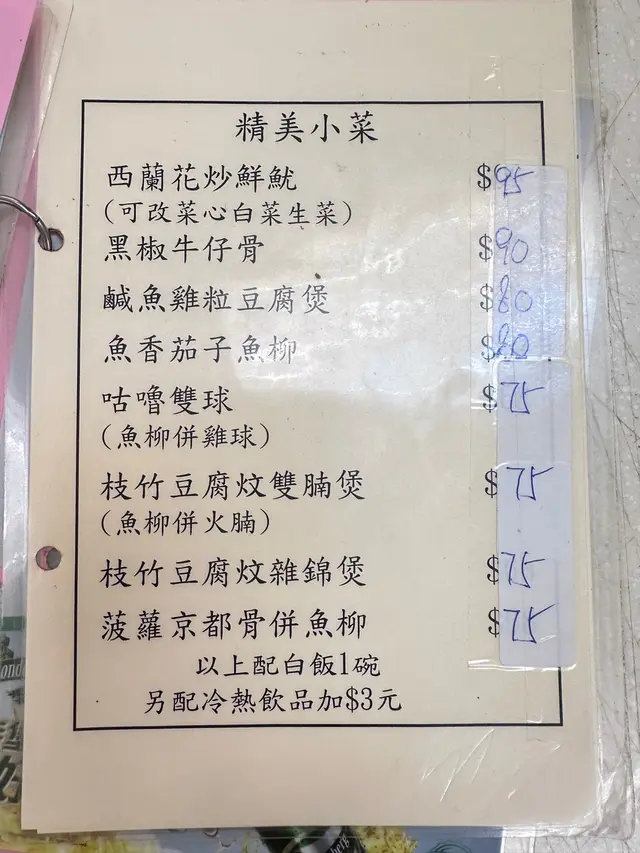 精美小菜
西蘭花炒鮮魷 $95
(可改菜心白菜生菜)
黑椒牛仔骨 $90
鹹魚雞粒豆腐煲 $80
魚香茄子魚柳 $80
咕嚕雙球 $75
(魚柳併雞球)
枝竹豆腐炆雙腩煲 $75
(魚柳併火腩)
枝竹豆腐炆雜錦煲 $75
菠蘿京都骨併魚柳 $75
以上配白飯1碗
另配冷熱飲品加$3元